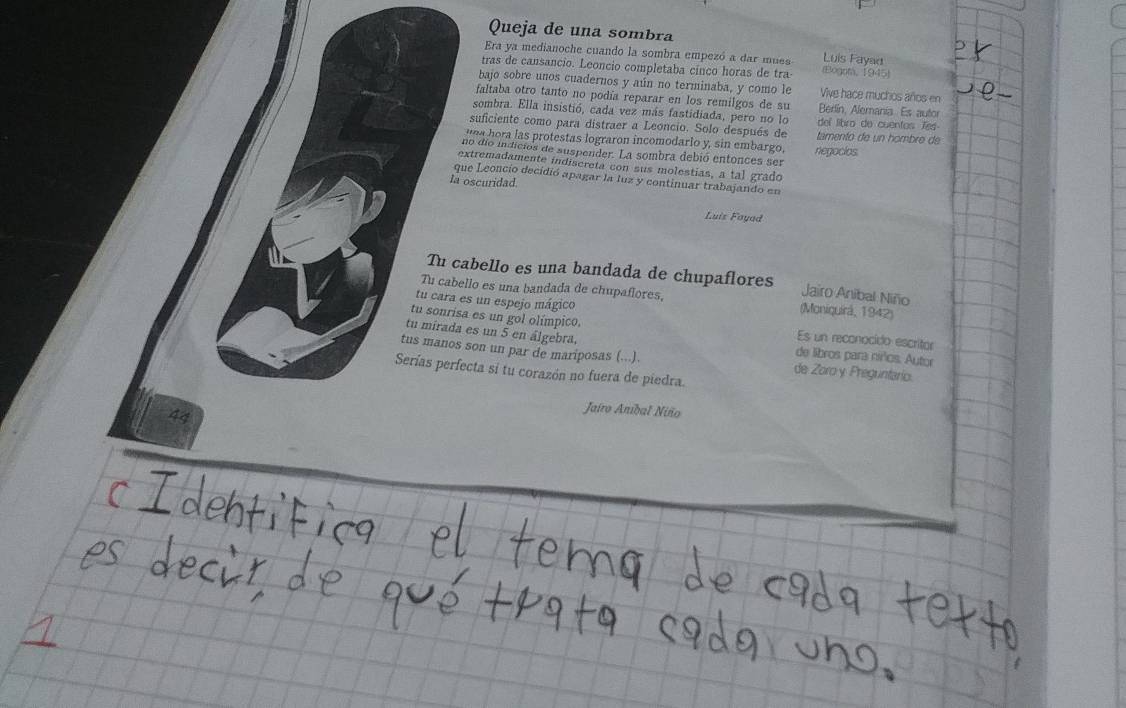 Queja de una sombra
Era ya medianoche cuando la sombra empezó a dar mues-
tras de cansancio. Leoncio completaba cinco horas de tra-
bajo sobre unos cuadernos y aún no terminaba, y como le
faltaba otro tanto no podía reparar en los remilgos de su
sombra. Ella insistió, cada vez más fastidiada, pero no lo
suficiente como para distraer a Leoncio. Solo después de
una hora las protestas lograron incomodarlo y, sin embargo,
no dio indicios de suspender. La sombra debió entonces ser
extremadamente indiscreta con sus molestias, a tal grado
que Leoncio decidió apagar la luz y continuar trabajando en
la oscuridad.
Luis Fayad
Luis Fayad
(Bogotá, 1945)
Vive hace muchos años en
Berlín, Alemania. Es autor
del libro de cuentos Tes-
tamento de un hombre de
negocios.
Tu cabello es una bandada de chupaflores
Tu cabello es una bandada de chupaflores,
tu cara es un espejo mágico
tu sonrisa es un gol olímpico,
tu mirada es un 5 en álgebra,
tus manos son un par de mariposas (...).
Serías perfecta si tu corazón no fuera de piedra.
Jairo Aníbal Niño
Jairo Aníbal Niño
(Moniquirá, 1942)
Es un reconocido escritor
de libros para niños. Autor
de Zoro y Preguntario.
44
c Identifica el tema de cada texto,
es decir, de qué trata cada uno.
1